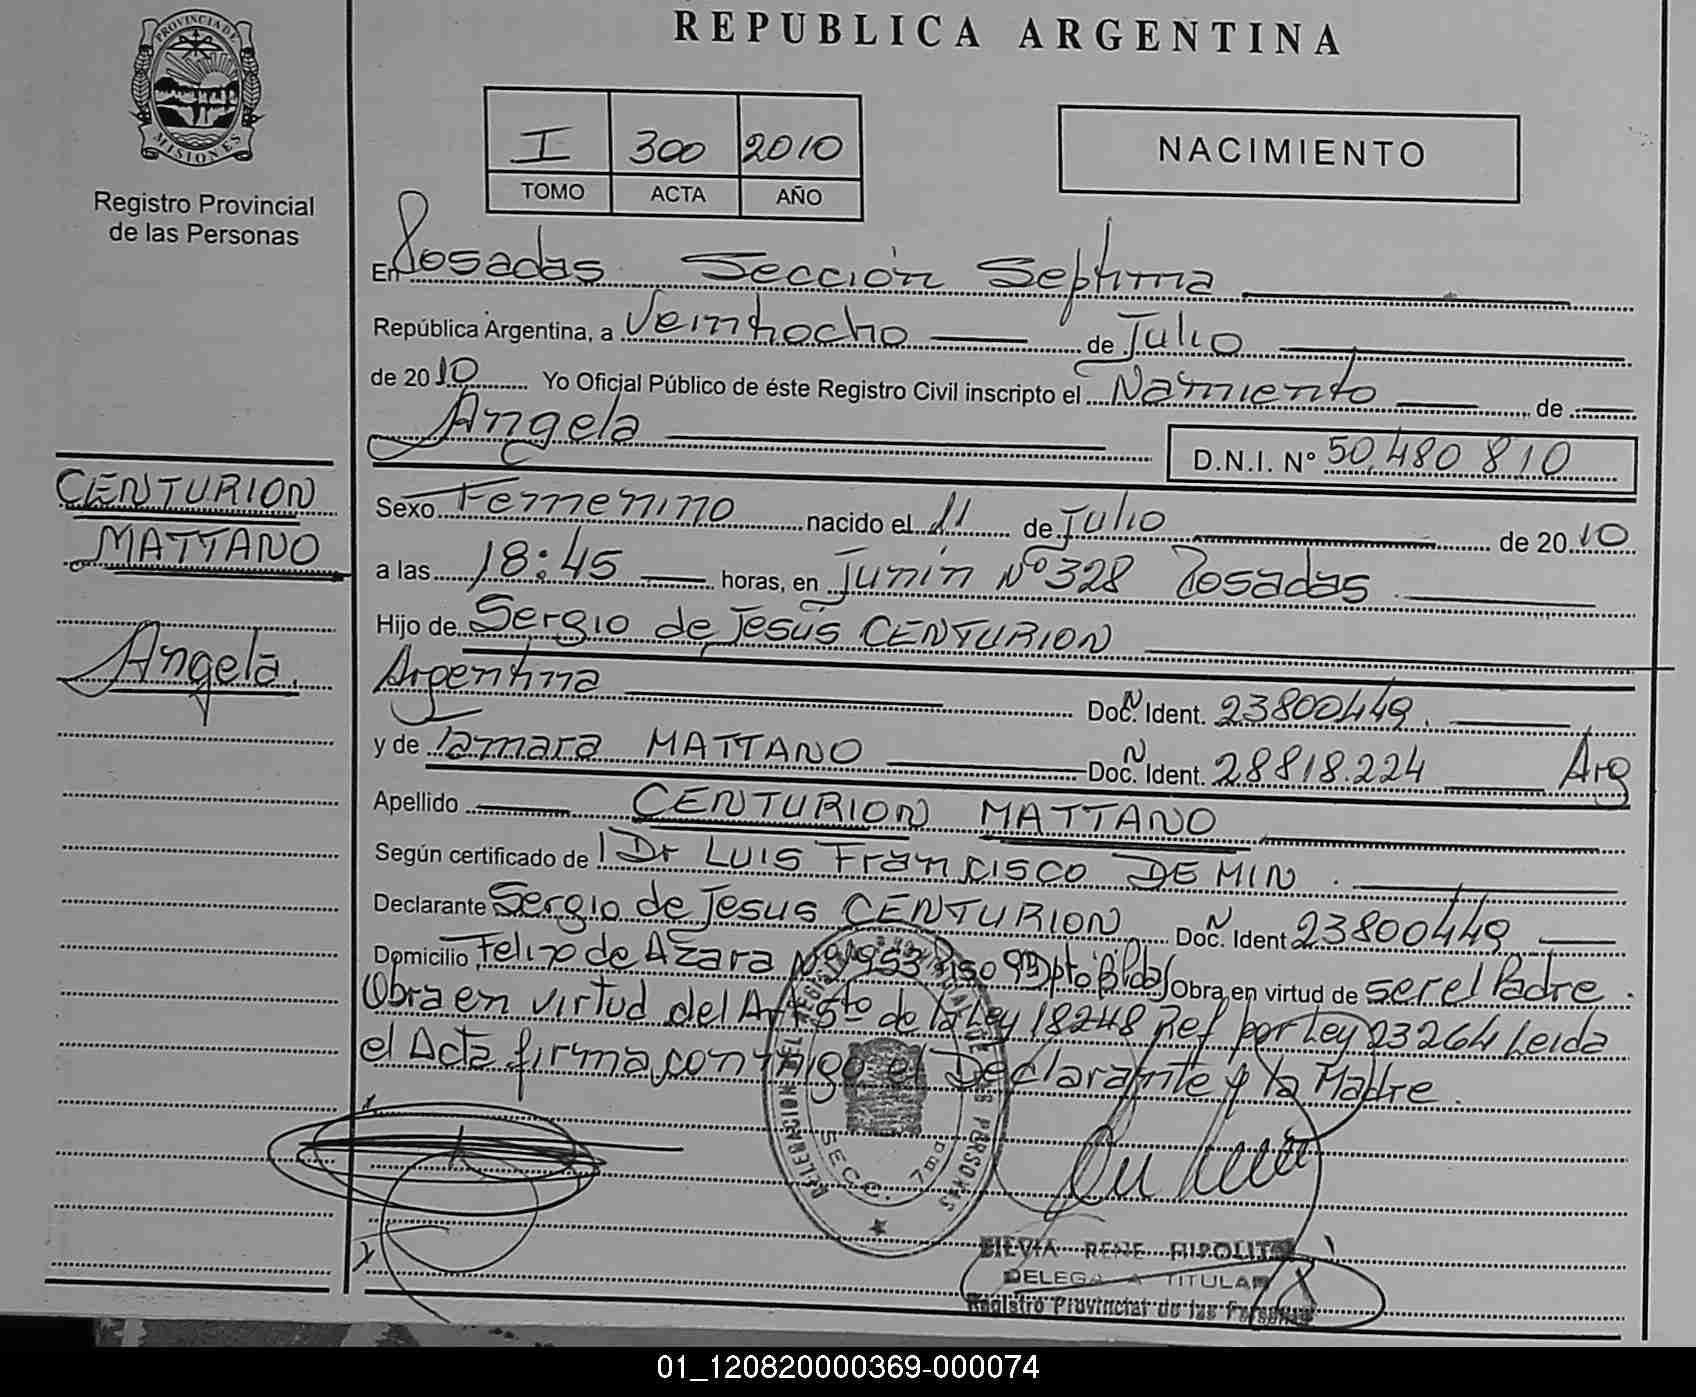 REPUBLICA ARGENTINA
PROVINCIA DE MISIONES
Registro Provincial
de las Personas
I 300 2010
TOMO ACTA AÑO
NACIMIENTO
En Posadas Sección Septima
República Argentina, a Veintiocho de Julio
de 2010 Yo Oficial Público de éste Registro Civil inscripto el Nacimiento de
Angela
D.N.I. N° 50.480 810
CENTURION
MATTANO
Angela.
Sexo Femenino nacido el 11 de Julio de 2010
a las 18:45 horas, en Junin Nº 328 Posadas
Hijo de Sergio de Jesús CENTURION
Argentina Doc. N Ident. 23800449.
y de Tamara MATTANO Doc. N Ident. 28818.224 Arg
Apellido CENTURION MATTANO
Según certificado de Dr LUIS FranCISCO DEMIN.
Declarante Sergio de Jesus CENTURION Doc. N Ident 23800449
Domicilio Felix de Azara Nº 1953 Piso 9º Dpto B Pdas Obra en virtud de ser el Padre.
Obra en virtud del Art 5to de la Ley 18248 Ref por Ley 23264 Leida
el Acta firma conmigo el Declarante y la Madre.
DELEGACION DEL REGISTRO PROVINCIAL DE LAS PERSONAS
SECC. 7ma
SILVIA RENE HIPOLITO
DELEGADA TITULAR
Registro Provincial de las Personas
01_120820000369-000074